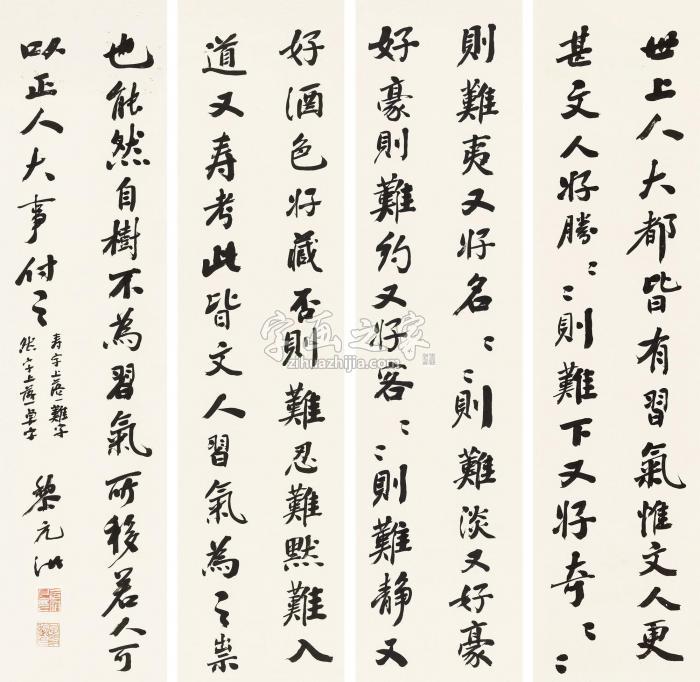 世上人大都皆有習氣惟文人更
甚文人好勝〻〻則難下又好奇〻〻
則難夷又好名〻〻則難淡又好豪
好豪則難約又好客〻〻則難静又
好酒色好臧否則難忍難默難入
道又寿考此皆文人習氣為之祟
也能然自樹不為習氣所移若人可
以正人大事付之
寿字上落一難字
然字上落一卓字
黎元洪
字画之家
zihuazhijia.com